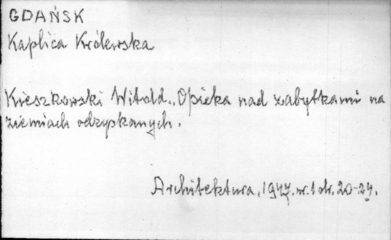 GDAŃSK
Kaplica Królewska
Kieszkowski Witold., Opieka nad zabytkami na
ziemiach odzyskanych.
Architektura, 1947, nr. 1 str. 20-24.